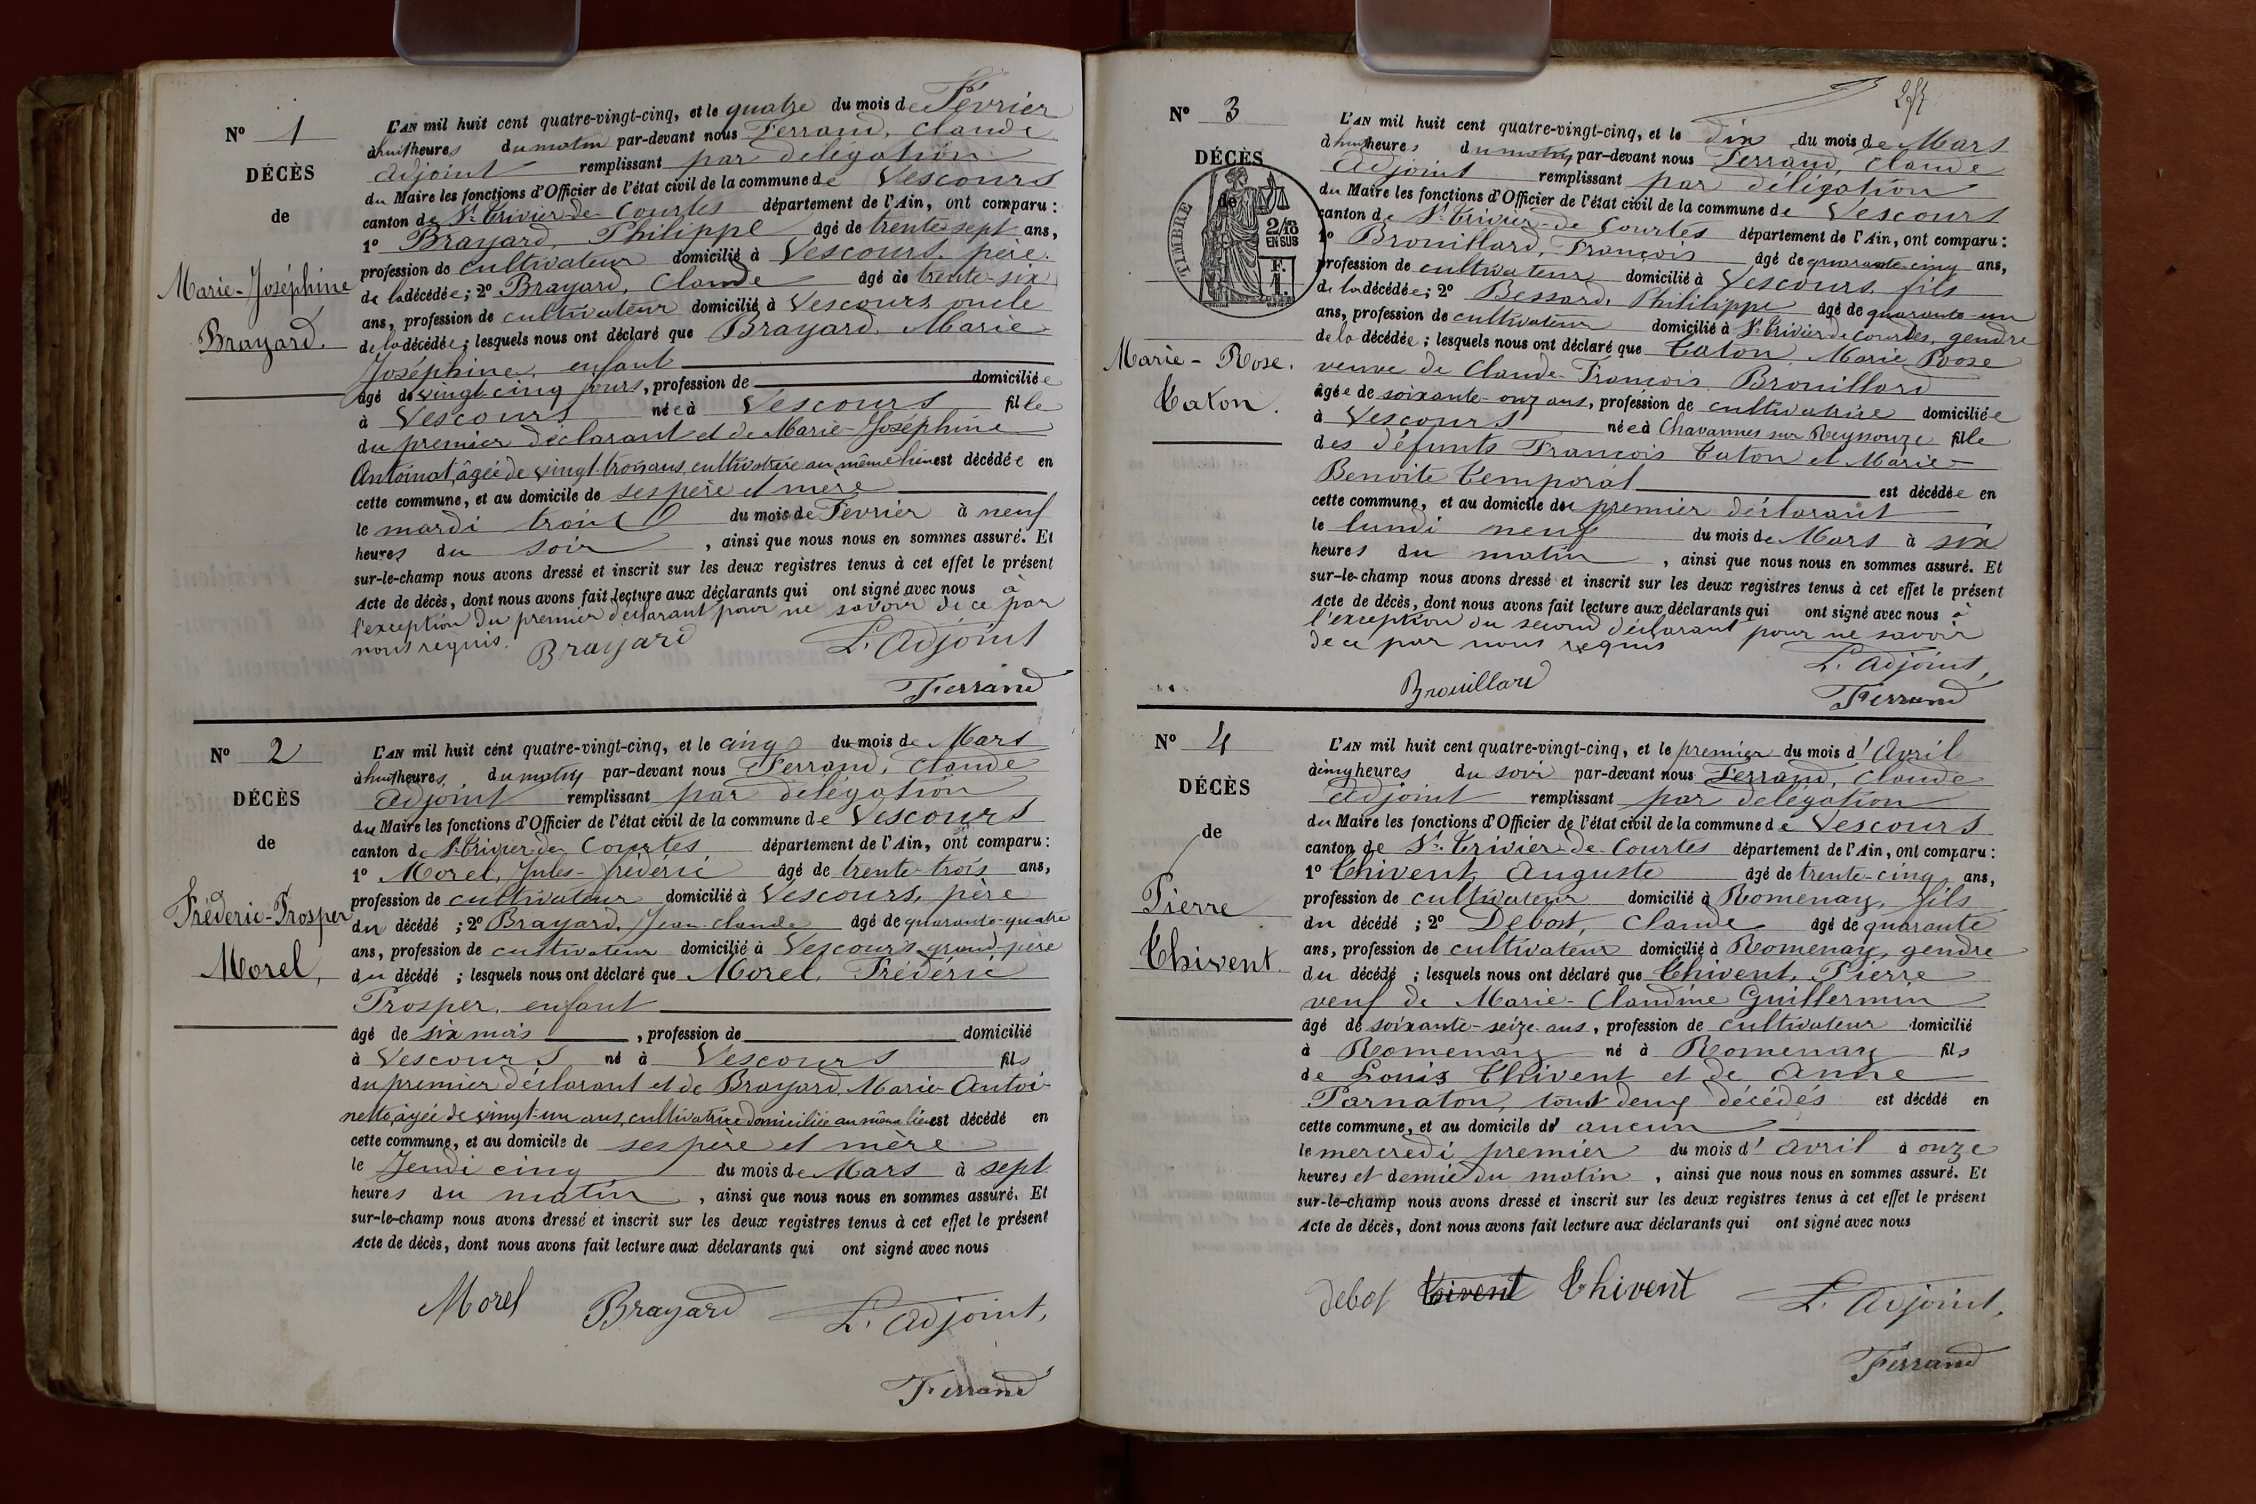 N° 1
DÉCÈS
de
Marie-Joséphine
Brayard.
L'AN mil huit cent quatre-vingt-cinq, et le quatre du mois de Février
à huit heures du matin par-devant nous Ferrand, Claude
adjoint remplissant par délégation
du Maire les fonctions d'Officier de l'état civil de la commune de Vescours
canton de St Trivier-de-Courtes département de l'Ain, ont comparu :
1° Brayard, Philippe âgé de trente-sept ans,
profession de cultivateur domicilié à Vescours, père
de la décédée ; 2° Brayard, Claude âgé de trente-six
ans, profession de cultivateur domicilié à Vescours, oncle
de la décédée ; lesquels nous ont déclaré que Brayard, Marie
Joséphine, enfant
âgé de vingt-cinq jours, profession de domiciliée
à Vescours née à Vescours fille
du premier déclarant et de Marie-Joséphine
Antoinat, âgée de vingt-trois ans, cultivatrice au même lieu est décédée en
cette commune, et au domicile de ses père et mère
le mardi trois du mois de Février à neuf
heures du soir, ainsi que nous nous en sommes assuré. Et
sur-le-champ nous avons dressé et inscrit sur les deux registres tenus à cet effet le présent
Acte de décès, dont nous avons fait lecture aux déclarants qui ont signé avec nous à
l'exception du premier déclarant pour ne savoir de ce par
nous requis.
Brayard L'adjoint
Ferrand
N° 2
DÉCÈS
de
Fréderic-Prosper
Morel,
L'AN mil huit cent quatre-vingt-cinq, et le cinq du mois de Mars
à huit heures du matin par-devant nous Ferrand, Claude
adjoint remplissant par délégation
du Maire les fonctions d'Officier de l'état civil de la commune de Vescours
canton de St Trivier-de-Courtes département de l'Ain, ont comparu :
1° Morel, Jules-Frédéric âgé de trente-trois ans,
profession de cultivateur domicilié à Vescours, père
du décédé ; 2° Brayard, Jean-Claude âgé de quarante-quatre
ans, profession de cultivateur domicilié à Vescours, grand-père
du décédé ; lesquels nous ont déclaré que Morel, Fréderic
Prosper, enfant
âgé de six mois, profession de domicilié
à Vescours né à Vescours fils
du premier déclarant et de Brayard, Marie-Antoi-
nette, âgée de vingt-un ans, cultivatrice domiciliée au même lieu est décédé en
cette commune, et au domicile de ses père et mère
le Jeudi cinq du mois de Mars à sept
heures du matin, ainsi que nous nous en sommes assuré. Et
sur-le-champ nous avons dressé et inscrit sur les deux registres tenus à cet effet le présent
Acte de décès, dont nous avons fait lecture aux déclarants qui ont signé avec nous
Morel Brayard L'adjoint,
Ferrand
N° 3
DÉCÈS
de
TIMBRE
2/10
EN SUS
F.
1.
Marie-Rose.
Caton.
L'AN mil huit cent quatre-vingt-cinq, et le dix du mois de Mars
à huit heures du matin par-devant nous Ferrand, Claude
adjoint remplissant par délégation
du Maire les fonctions d'Officier de l'état civil de la commune de Vescours
canton de St Trivier-de-Courtes département de l'Ain, ont comparu :
1° Brouillard, François âgé de quarante-cinq ans,
profession de cultivateur domicilié à Vescours, fils
de la décédée ; 2° Bessard, Philippe âgé de quarante-un
ans, profession de cultivateur domicilié à St Trivier de Courtes, gendre
de la décédée ; lesquels nous ont déclaré que Caton, Marie Rose
veuve de Claude-François Brouillard
âgée de soixante-onz ans, profession de cultivatrice domiciliée
à Vescours née à Chavannes sur Reyssouze fille
des défunts François Caton et Marie-
Benoite Temporal est décédée en
cette commune, et au domicile du premier déclarant
le lundi neuf du mois de Mars à six
heures du matin, ainsi que nous nous en sommes assuré. Et
sur-le-champ nous avons dressé et inscrit sur les deux registres tenus à cet effet le présent
Acte de décès, dont nous avons fait lecture aux déclarants qui ont signé avec nous à
l'exception du second déclarant pour ne savoir
de ce par nous requis
L'adjoint,
Brouillard Ferrand
N° 4
DÉCÈS
de
Pierre
Chivent.
L'AN mil huit cent quatre-vingt-cinq, et le premier du mois d'Avril
à cinq heures du soir par-devant nous Ferrand, Claude
adjoint remplissant par délégation
du Maire les fonctions d'Officier de l'état civil de la commune de Vescours
canton de St Trivier-de-Courtes département de l'Ain, ont comparu :
1° Chivent, Auguste âgé de trente-cinq ans,
profession de cultivateur domicilié à Romenay, fils
du décédé ; 2° Debost, Claude âgé de quarante
ans, profession de cultivateur domicilié à Romenay, gendre
du décédé ; lesquels nous ont déclaré que Chivent, Pierre
veuf de Marie-Claudine Guillermin
âgé de soixante-seize ans, profession de cultivateur domicilié
à Romenay né à Romenay fils
de Louis Chivent et de Anne
Parnaton, tout deux décédés est décédé en
cette commune, et au domicile d' aucun
le mercredi premier du mois d'avril à onze
heures et demie du matin, ainsi que nous nous en sommes assuré. Et
sur-le-champ nous avons dressé et inscrit sur les deux registres tenus à cet effet le présent
Acte de décès, dont nous avons fait lecture aux déclarants qui ont signé avec nous
debost Chivent L'adjoint,
Ferrand